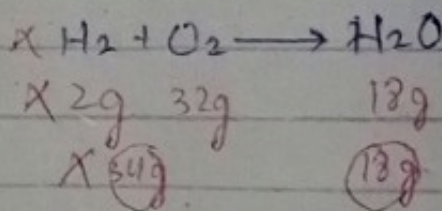 × H₂ + O₂ ⟶ H₂O
× 2g 32g 18g
× 34g 18g